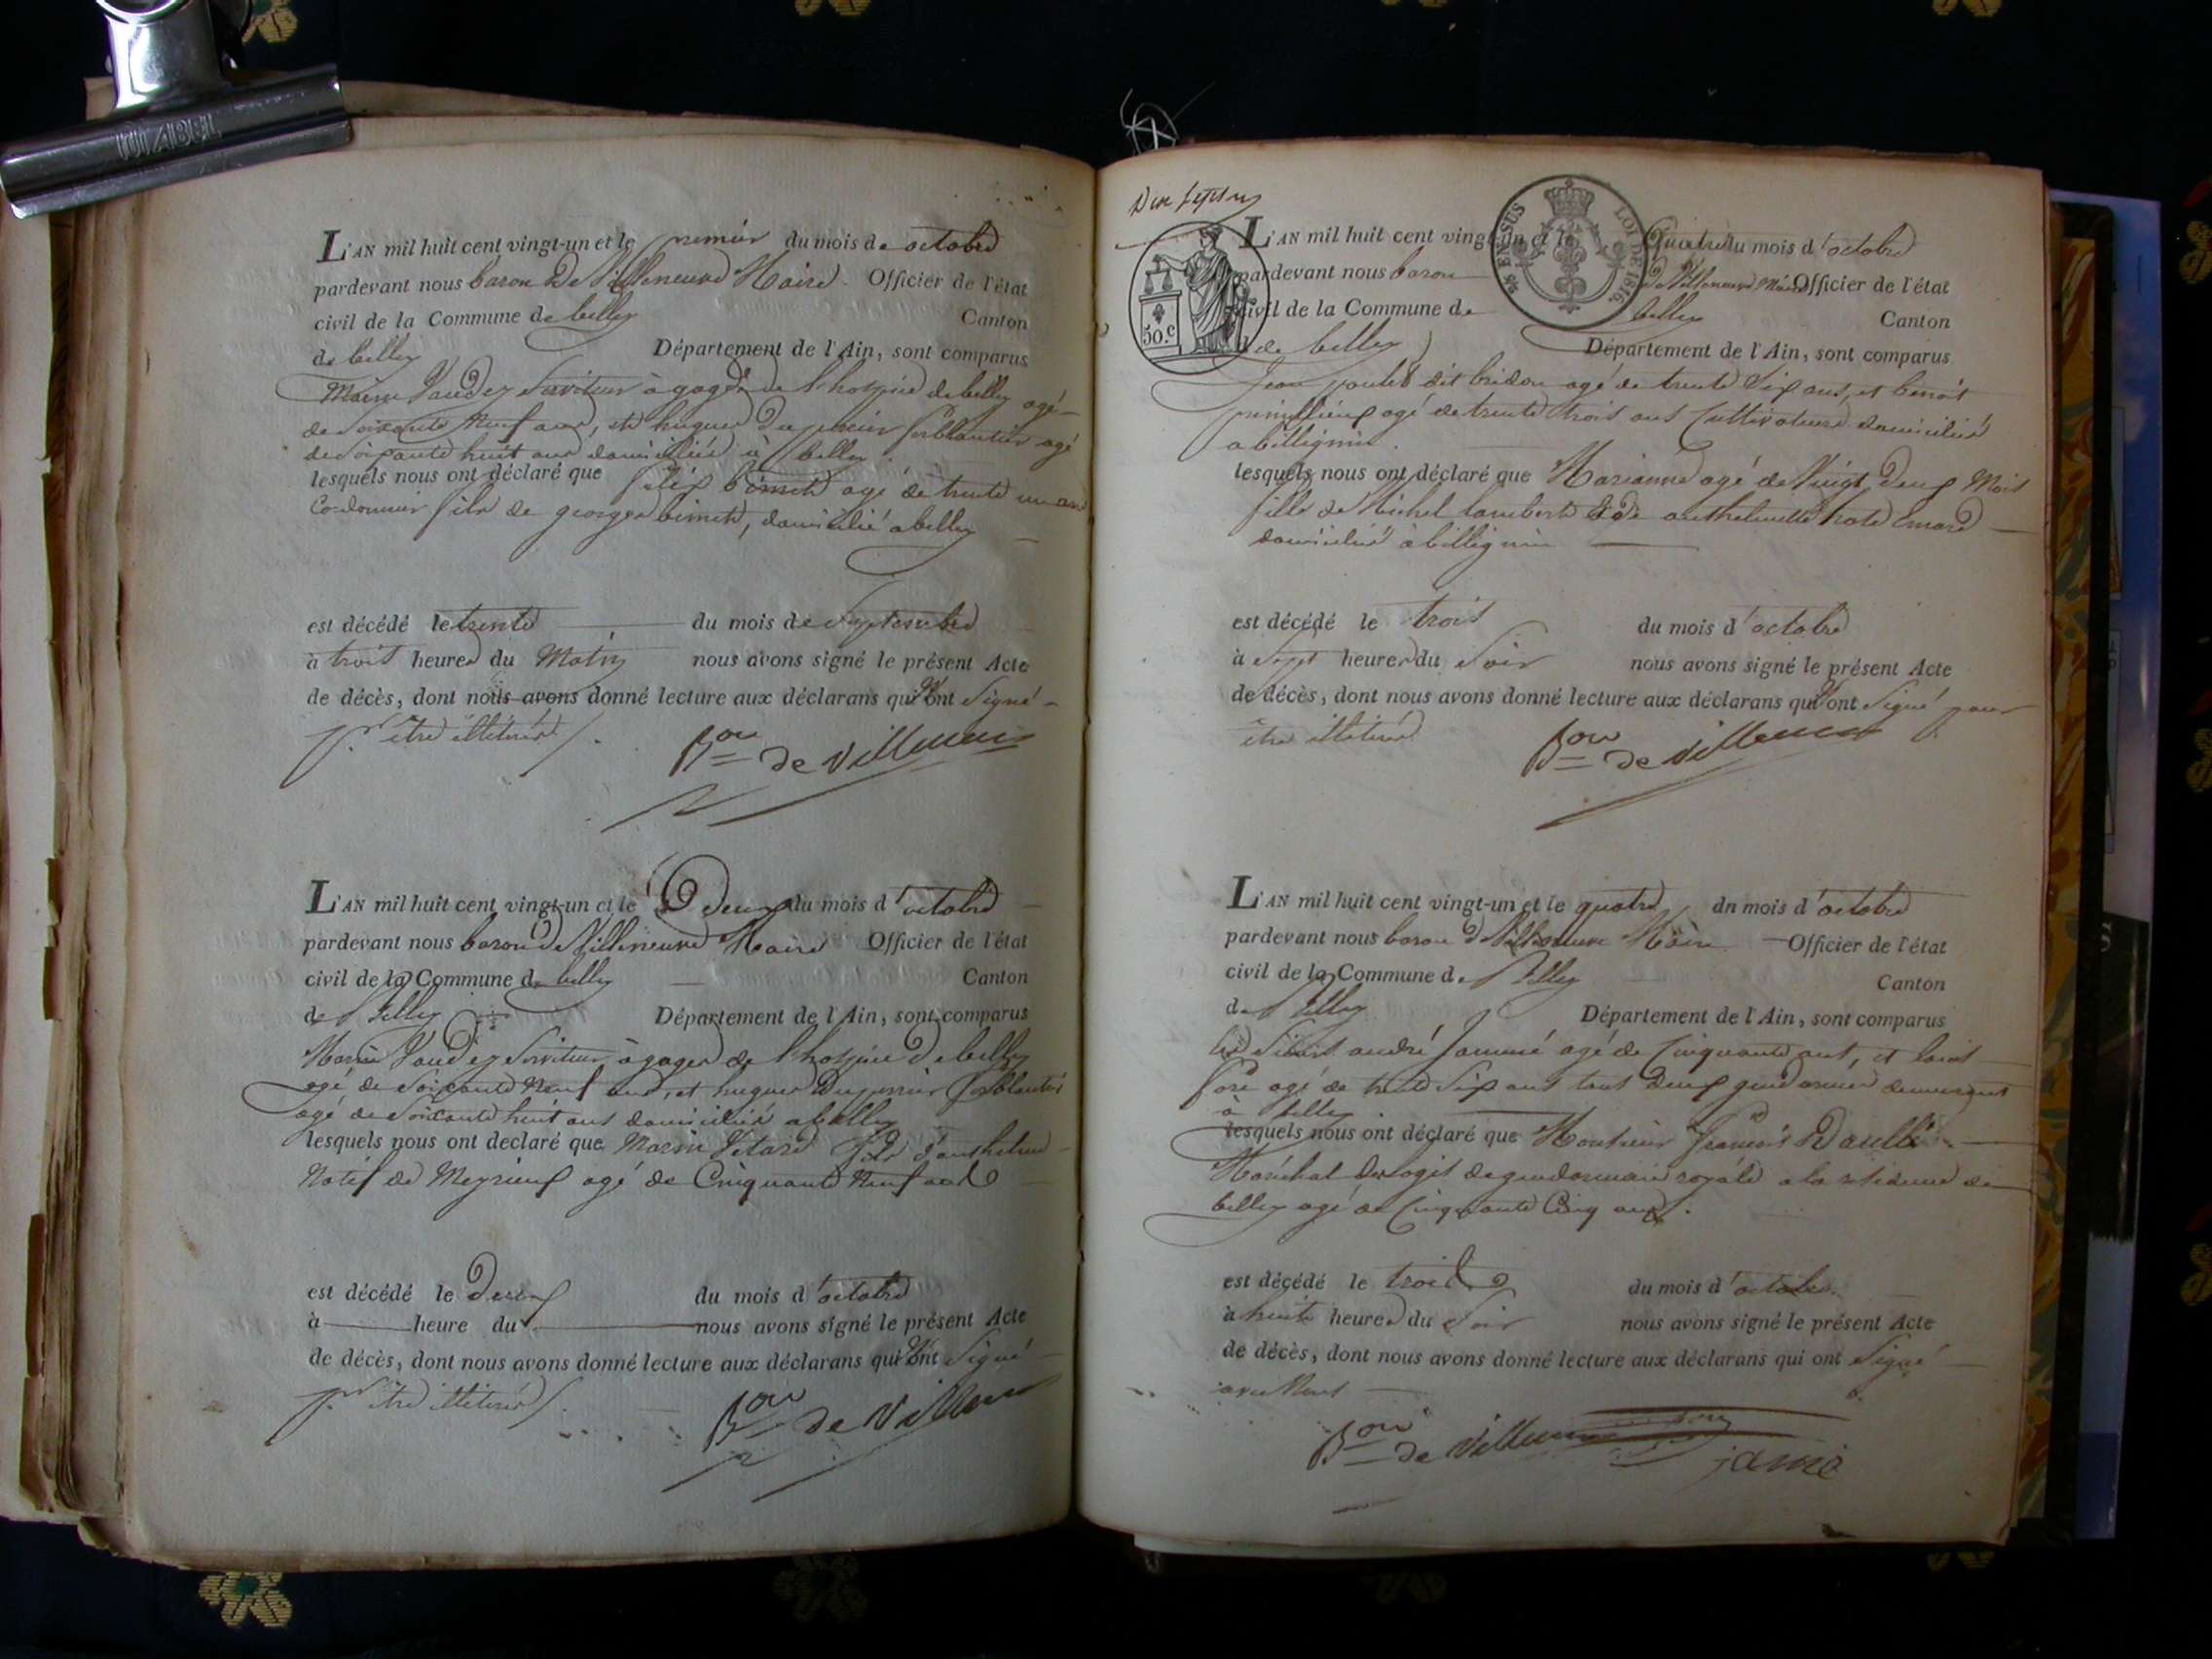 L'AN mil huit cent vingt-un et le premier du mois de octobre
pardevant nous baron De Villeneuve Maire Officier de l'état
civil de la Commune de belley Canton
de belley Département de l'Ain, sont comparus
Serviteur à gages de l'hospice de belley agé
de Soixante Neuf ans, et hugues ferblantier agé
de Soixante huit ans domiciliés à belley
lesquels nous ont déclaré que agé de trente un an
Cordonnier fils de george domicilié a belley
est décédé le trente du mois de Septembre
à trois heures du Matin nous avons signé le présent Acte
de décès, dont nous avons donné lecture aux déclarans qui n'ont Signé
pr etre illitérés
Bon de Villeneuve
L'AN mil huit cent vingt-un et le Deux du mois d'octobre
pardevant nous baron de Villeneuve Maire Officier de l'état
civil de la Commune de belley Canton
de Belley Département de l'Ain, sont comparus
Serviteur à gages de l'hospice de belley
agé de Soixante Neuf ans, et hugues ferblantier
agé de Soixante huit ans domiciliés a belley
lesquels nous ont declaré que Marin Vetard fils d'anthelme
Natif de Meyrieux agé de Cinquante Neuf ans
est décédé le Deux du mois d'octobre
à heure du nous avons signé le présent Acte
de décès, dont nous avons donné lecture aux déclarans qui n'ont Signé
pr etre illitérés
Bon de Villeneuve
Dix Sept
50.c
EN SUS
LOI DE 1816.
L'AN mil huit cent vingt-un et le Quatre du mois d'octobre
pardevant nous baron de Villeneuve Maire Officier de l'état
civil de la Commune de belley Canton
de belley Département de l'Ain, sont comparus
Jean dit bridon agé de trente Six ans, et benoit
agé de trente trois ans Cultivateurs domiciliés
a billignin.
lesquels nous ont déclaré que Marianne agé de Vingt Deux Mois
fille de Michel lambert et de anthelmette
domiciliés à billignin
est décédé le trois du mois d'octobre
à Sept heures du Soir nous avons signé le présent Acte
de décès, dont nous avons donné lecture aux déclarans qui n'ont Signé pour
etre illitérés
Bon de Villeneuve
L'AN mil huit cent vingt-un et le quatre dn mois d'octobre
pardevant nous baron de Villeneuve Maire Officier de l'état
civil de la Commune de Belley Canton
de Belley Département de l'Ain, sont comparus
andré Jammé agé de Cinquante ans, et Louis
agé de trente Six ans tous Deux gendarmes demeurant
à Belley
lesquels nous ont déclaré que Monsieur François
Maréchal Des logis de gendarmerie royale a la résidence de
belley agé de Cinquante Cinq ans.
est décédé le trois du mois d'octobre
à huit heures du Soir nous avons signé le présent Acte
de décès, dont nous avons donné lecture aux déclarans qui ont Signé
avec Nous
Bon de Villeneuve
jamé